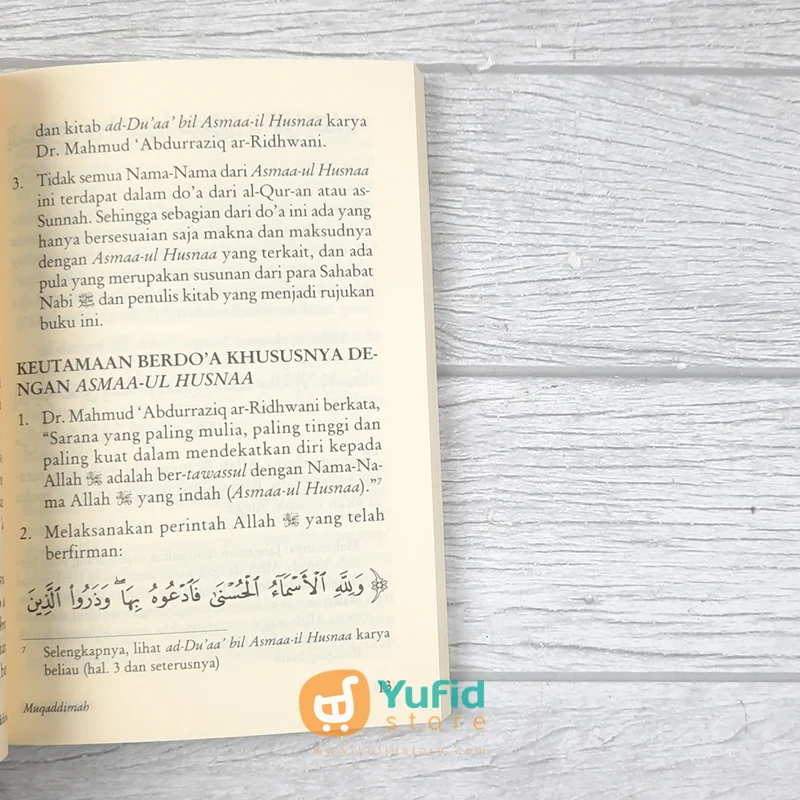 dan kitab ad-Du'aa' bil Asmaa-il Husnaa karya
Dr. Mahmud 'Abdurraziq ar-Ridhwani.
3. Tidak semua Nama-Nama dari Asmaa-ul Husnaa
ini terdapat dalam do'a dari al-Qur-an atau as-
Sunnah. Sehingga sebagian dari do'a ini ada yang
hanya bersesuaian saja makna dan maksudnya
dengan Asmaa-ul Husnaa yang terkait, dan ada
pula yang merupakan susunan dari para Sahabat
Nabi ﷺ dan penulis kitab yang menjadi rujukan
buku ini.
KEUTAMAAN BERDO'A KHUSUSNYA DE-
NGAN ASMAA-UL HUSNAA
1. Dr. Mahmud 'Abdurraziq ar-Ridhwani berkata,
"Sarana yang paling mulia, paling tinggi dan
paling kuat dalam mendekatkan diri kepada
Allah adalah ber-tawassul dengan Nama-Na-
ma Allah yang indah (Asmaa-ul Husnaa)."⁷
2. Melaksanakan perintah Allah yang telah
berfirman:
﴿ وَلِلَّهِ الْأَسْمَاءُ الْحُسْنَىٰ فَادْعُوهُ بِهَا ۖ وَذَرُوا الَّذِينَ
⁷ Selengkapnya, lihat ad-Du'aa' bil Asmaa-il Husnaa karya
beliau (hal. 3 dan seterusnya)
13
Muqaddimah
Yufid
store
www.yufidstore.com